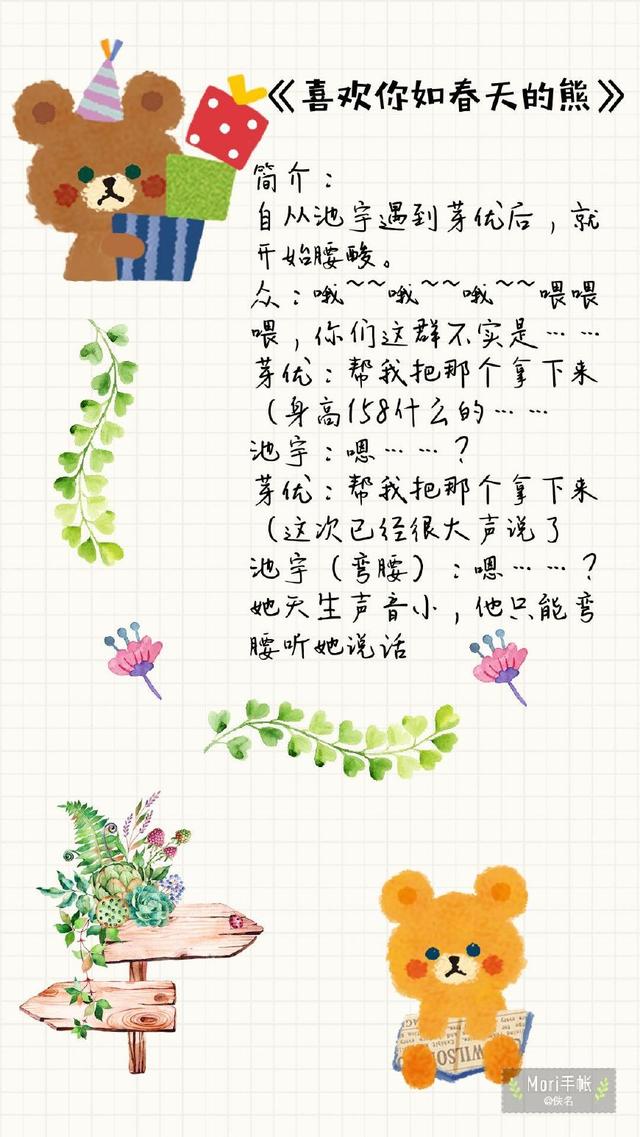 《喜欢你如春天的熊》
简介：
自从池宇遇到芽优后，就
开始腰酸。
众：哦~~哦~~哦~~喂喂
喂，你们这群不实是……
芽优：帮我把那个拿下来
（身高158什么的……
池宇：嗯……？
芽优：帮我把那个拿下来
（这次已经很大声说了
池宇（弯腰）：嗯……？
她天生声音小，他只能弯
腰听她说话
WILSO
Mori手帐
@佚名